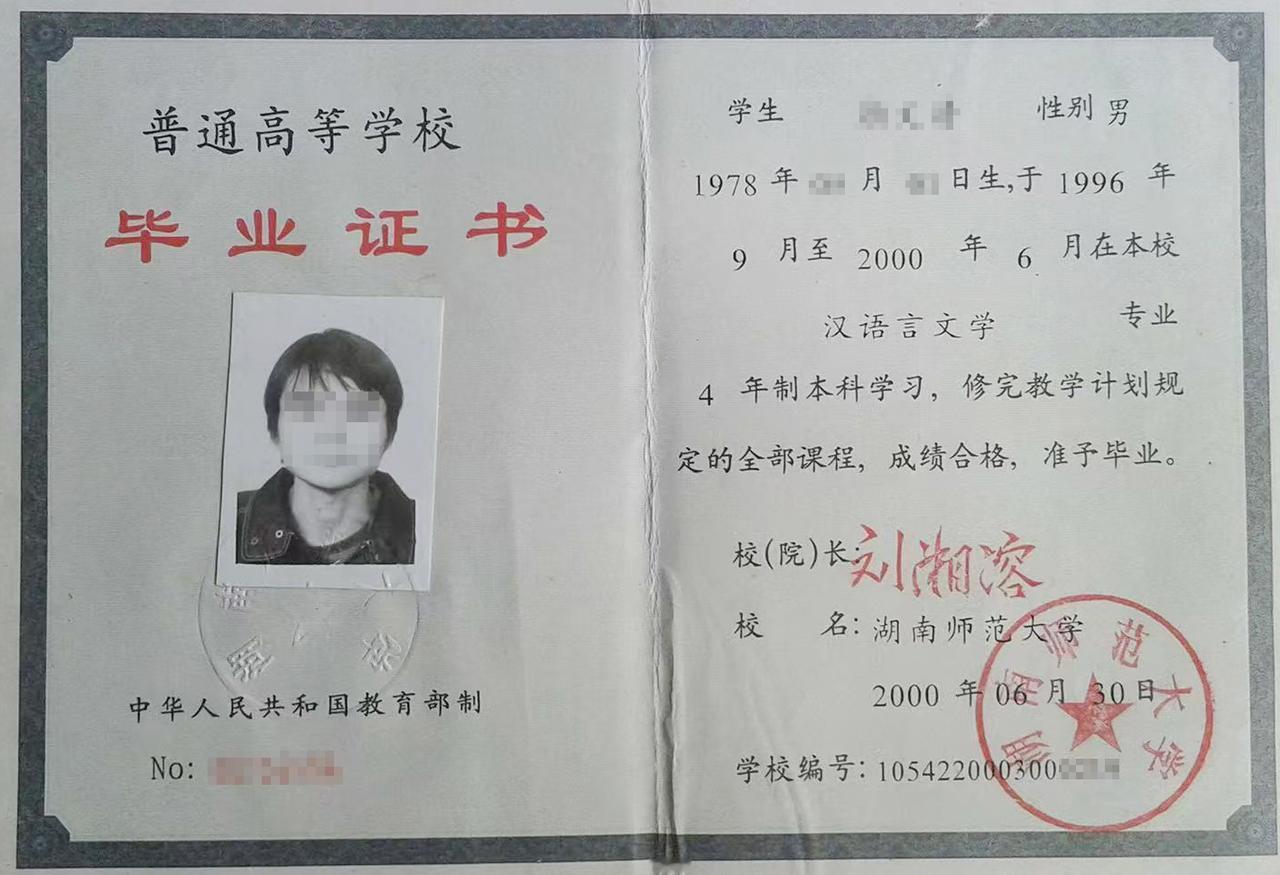 普通高等学校
毕业证书
中华人民共和国教育部制
No:
学生 性别 男
1978 年 月 日生,于 1996 年
9 月至 2000 年 6 月在本校
汉语言文学 专业
4 年制本科学习，修完教学计划规
定的全部课程，成绩合格，准予毕业。
校(院)长:刘湘溶
校 名:湖南师范大学
2000 年 06 月 30 日
学校编号:105422000300
湖南师范大学